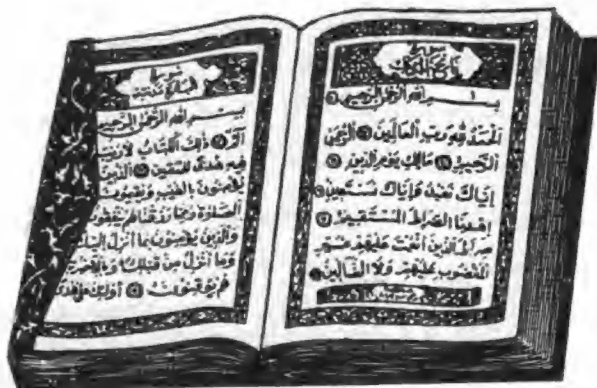 سورة
فاتحة الكتاب
بسم الله الرحمن الرحيم ١
الحمد لله رب العالمين ٢ الرحمن
الرحيم ٣ مالك يوم الدين ٤
إياك نعبد وإياك نستعين ٥
إهدنا الصراط المستقيم ٦
صراط الذين أنعمت عليهم غير
المغضوب عليهم ولا الضالين ٧
سورة
بسم الله الرحمن الرحيم
الم ١ ذلك الكتاب لا ريب
فيه هدى للمتقين ٢ الذين
يؤمنون بالغيب ويقيمون
الصلاة ومما رزقناهم ينفقون
والذين يؤمنون بما أنزل إليك
وما أنزل من قبلك وبالآخرة
هم يوقنون ٤ أولئك على هدى